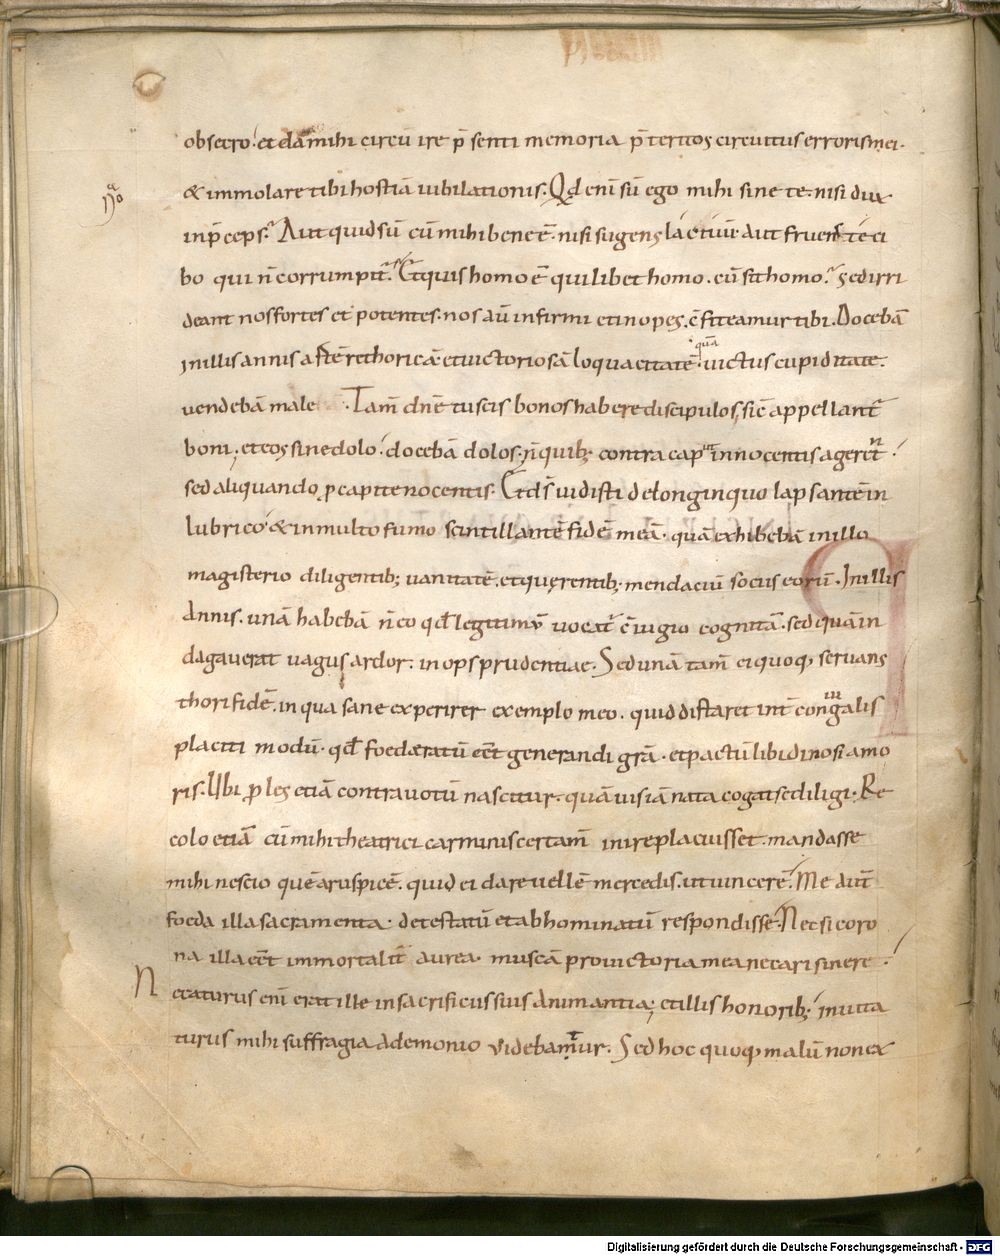 obsecro. et dā mihi circū ire p̄senti memoria p̄teritos circuitus erroris mei.
& immolare tibi hostiā iubilationis. Qd enī sū ego mihi sine te. nisi dux
in p̄ceps. Aut quid sū cū mihi bene ē. nisi sugens lac tuū aut fruens te ci
bo qui n̄ corrumpit̄. Et quis homo ē quilibet homo. cū sit homo. Sed irri
deant nos fortes et potentes. nos aū infirmi et inopes, c̄fiteamur tibi. Docebā
in illis annis artē rethoricā. et victoriosā loquacitatē quā victus cupiditate.
vendebā male . Tam̄ dn̄e tu scis bonos habere discipulos, sic̄ appellant̄
boni. et eos sine dolo. docebā dolos. n̄ quib; contra caput innocentis agerent.
sed aliquando p capite nocentis. Et ds̄ vidisti de longinquo lapsantē in
lubrico. & in multo fumo scintillantē fidē meā. quā exhibebā in illo
magisterio diligentib; vanitatē. et quęrentib; mendaciū socius eorū. In illis
annis. unā habebā n̄ eo qd̄ legitimū vocat̄ c̄iugio cognitā. sed quā in
dagaverat vagus ardor. inops prudentiae. Sed unā tam̄ ei quoq, servans
thori fidē. in qua sane experirer exemplo meo. quid distaret int̄ coniugalis
placiti modū. qd̄ foederatū eēt generandi grā. et pactū libidinosi amo
ris. Ubi ꝓles etiā contra votū nascitur. quāvis iā nata cogat se diligi. Re
colo etiā cū mihi theatrici carminis certam̄ inire placuisset. mandasse
mihi nescio quē aruspicē. quid ei dare vellē mercedis. ut vincerē. Me aut̄
foeda illa sacramenta. detestatū et abhominatū respondisse. Nec si coro
na illa eēt immortalit̄ aurea. muscā pro victoria mea necari sinere.
N ecaturus enī erat ille in sacrificiis suis animantia; et illis honorib; invita
turus mihi suffragia demonio videbatur. Sed hoc quoq, malū non ex
Digitalisierung gefördert durch die Deutsche Forschungsgemeinschaft - DFG